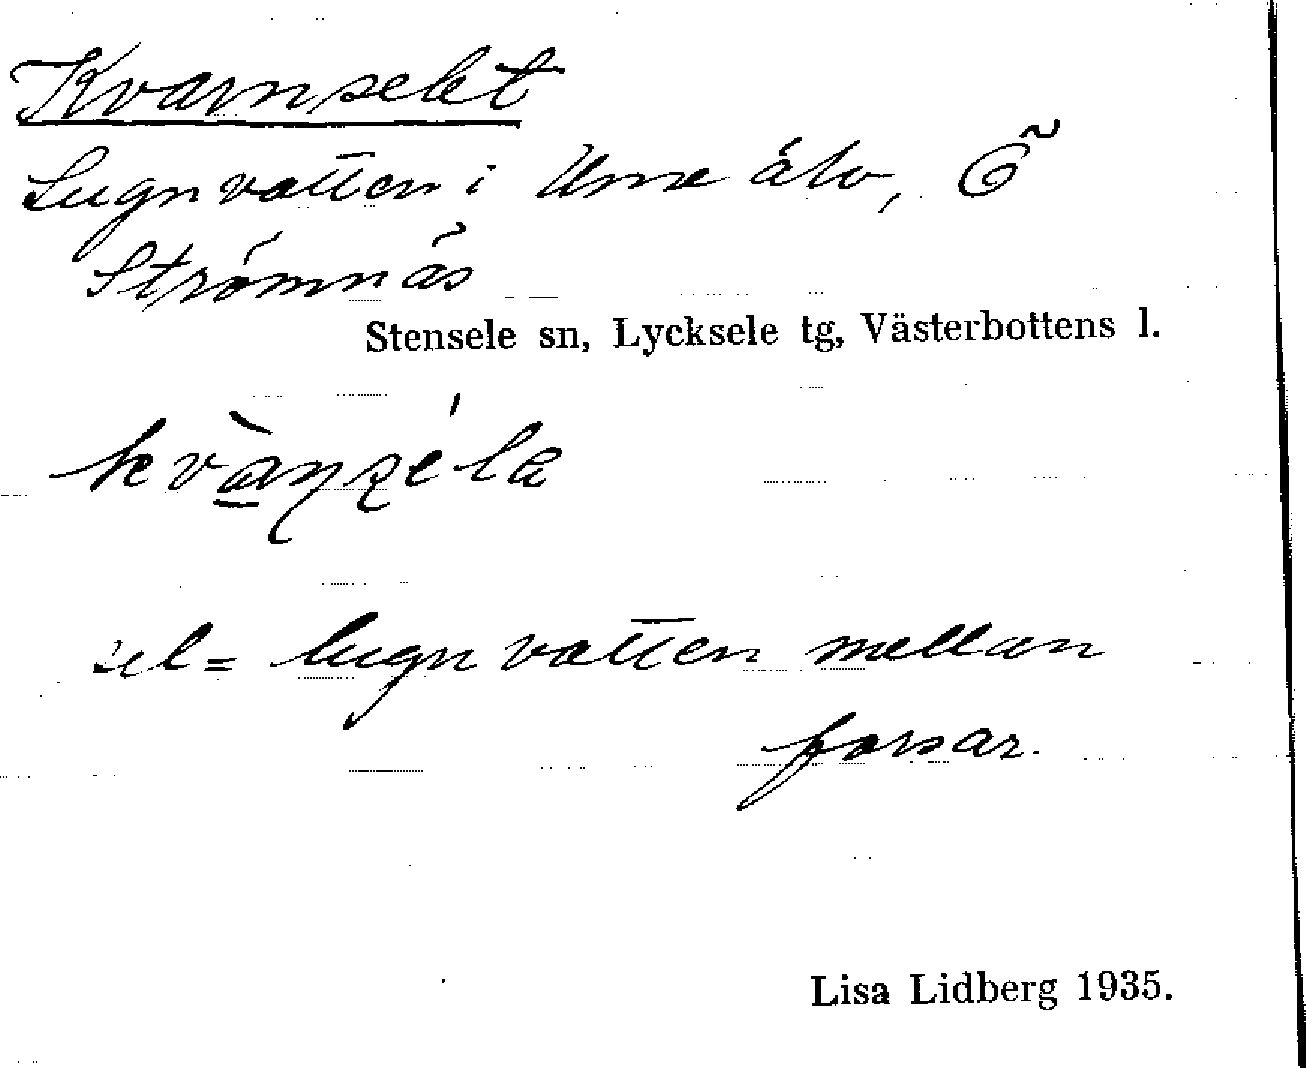 Kvarnselet
Lugnvatten i Ume älv, Ö
Strömnäs
Stensele sn, Lycksele tg, Västerbottens l.
sel = lugnvatten mellan
forsar.
Lisa Lidberg 1935.